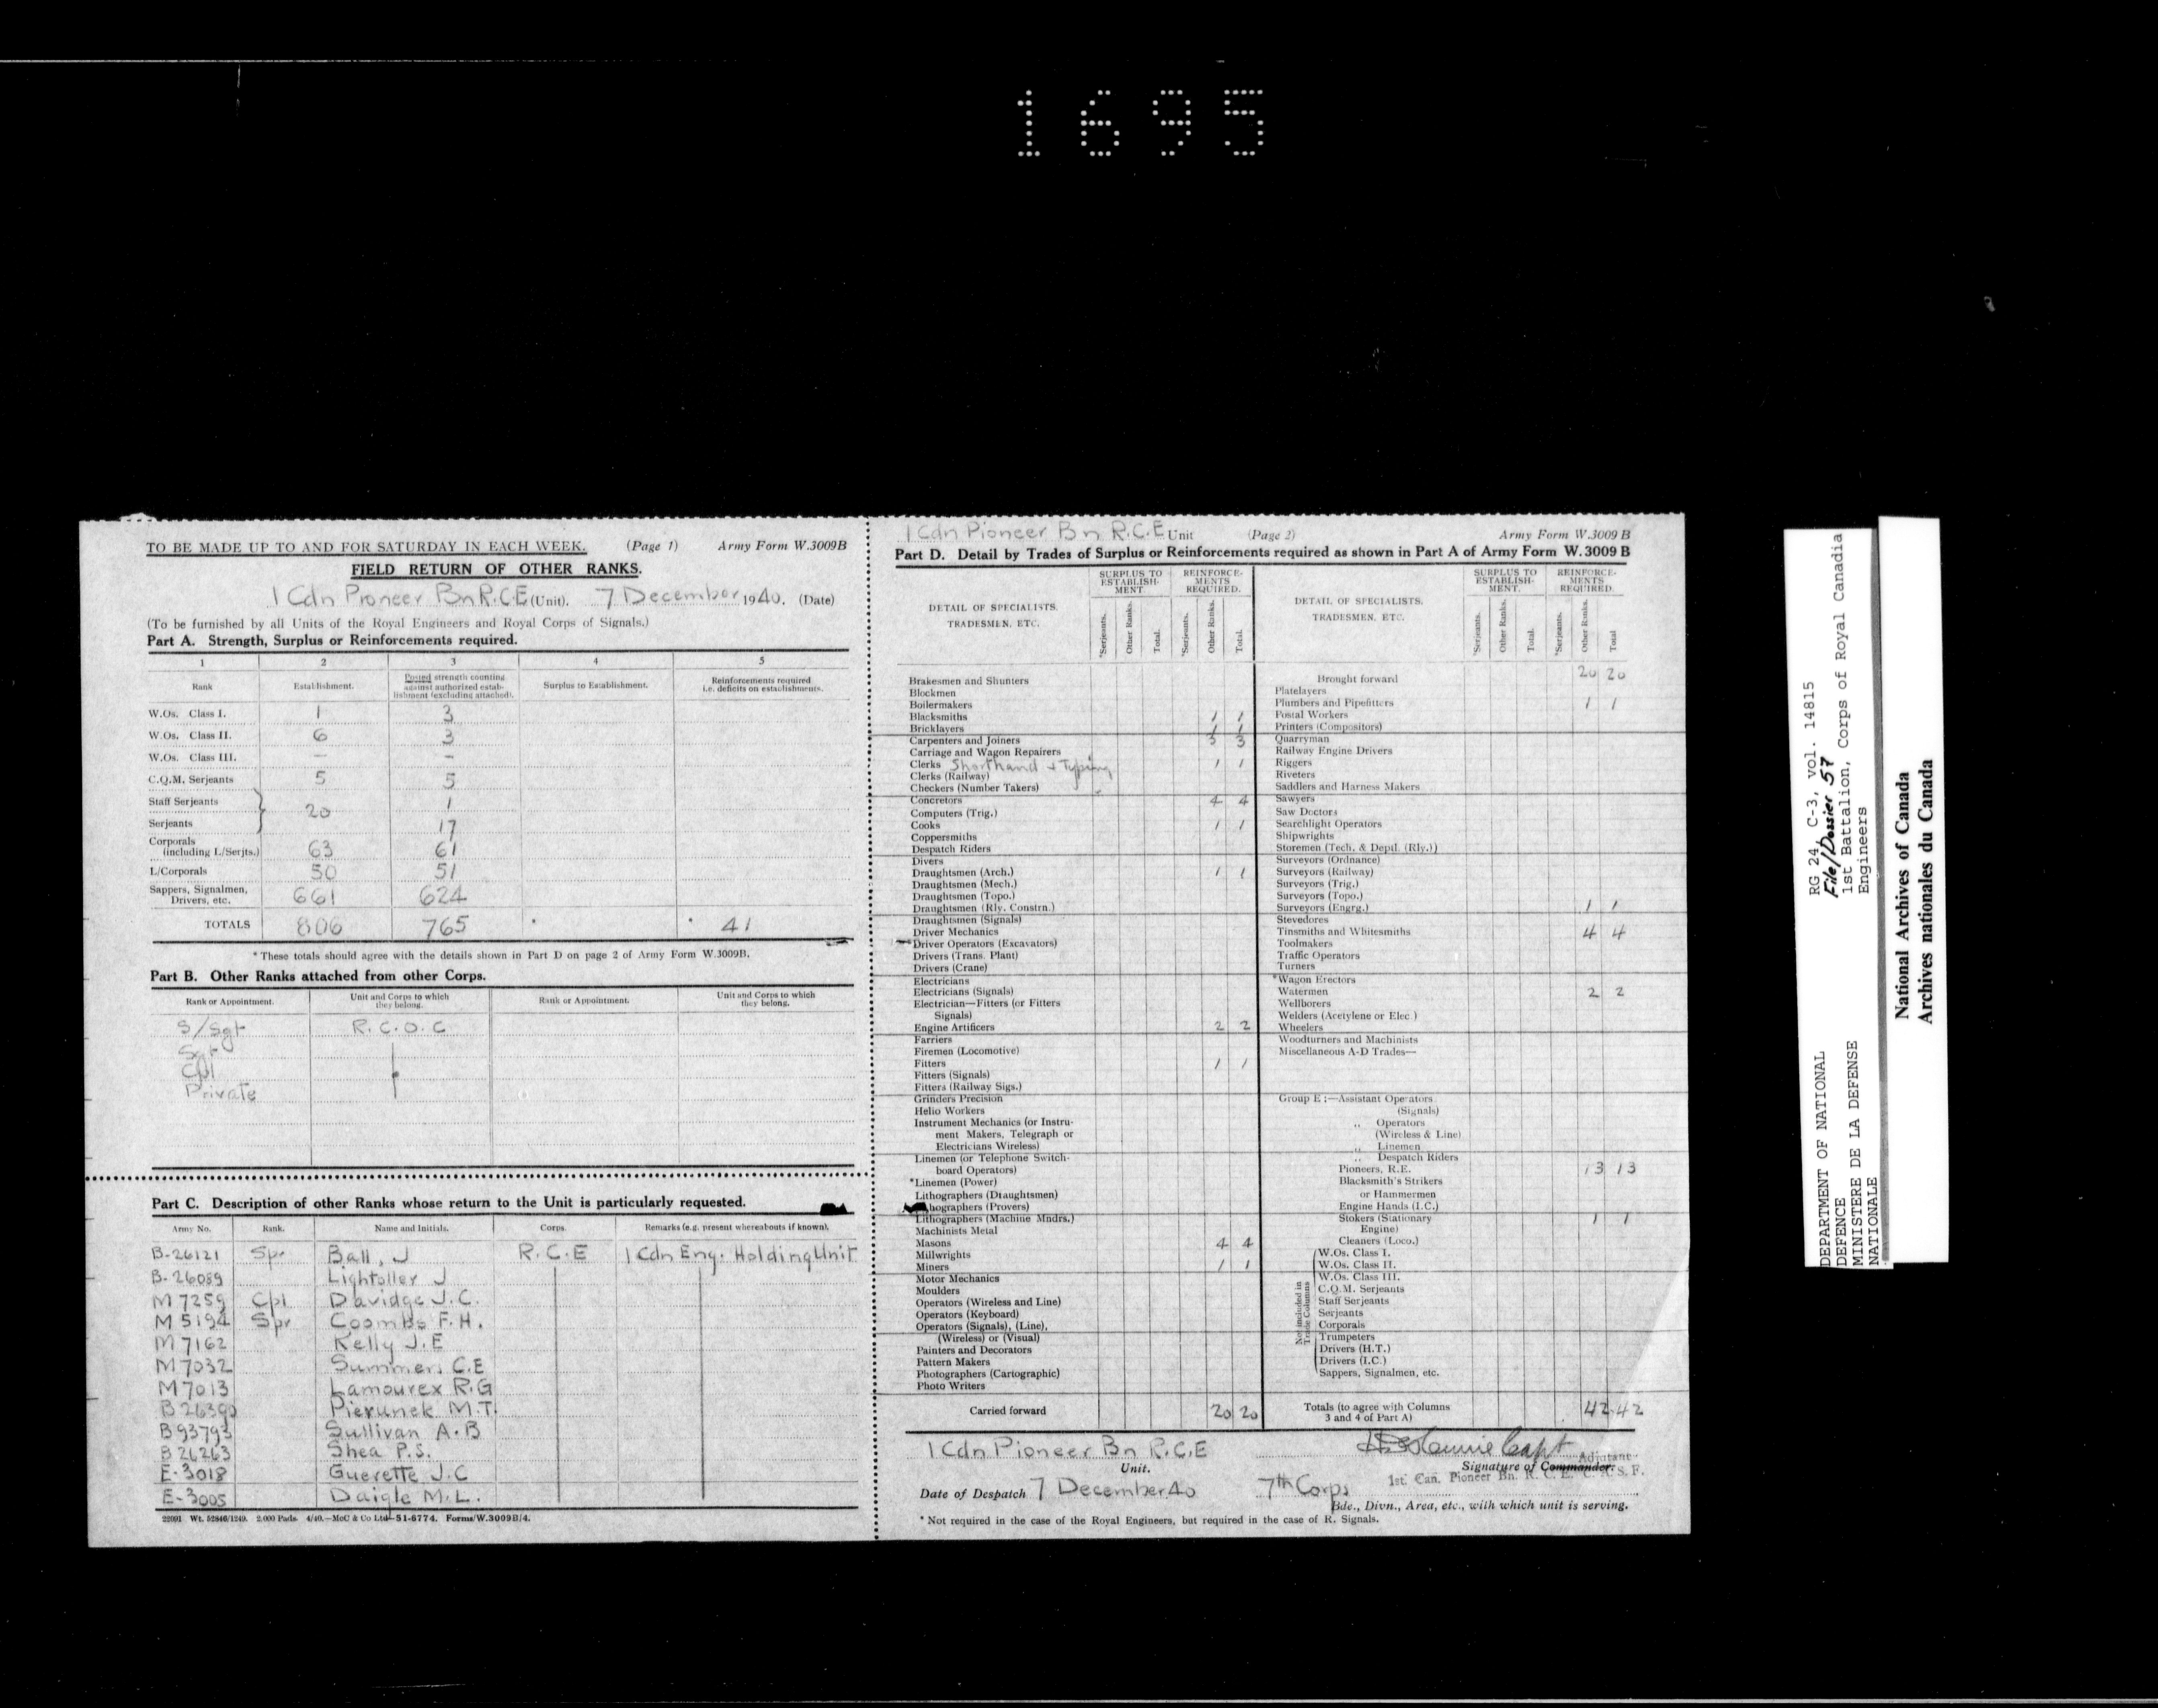 1695
TO BE MADE UP TO AND FOR SATURDAY IN EACH WEEK. (Page 1) Army Form W.3009B
FIELD RETURN OF OTHER RANKS.
1 Cdn Pioneer Bn R.C.E (Unit). 7 December 1940. (Date)
(To be furnished by all Units of the Royal Engineers and Royal Corps of Signals.)
Part A. Strength, Surplus or Reinforcements required.
1 2 3 4 5
Rank Establishment. Posted strength counting against authorized establishment (excluding attached). Surplus to Establishment. Reinforcements required i.e. deficits on establishments.
W.Os. Class I. 1 3
W.Os. Class II. 6 3
W.Os. Class III. — —
C.Q.M. Serjeants 5 5
Staff Serjeants } 20 1
Serjeants 17
Corporals (including L/Serjts.) 63 61
L/Corporals 50 51
Sappers, Signalmen, Drivers, etc. 661 624
TOTALS 806 765 * * 41
* These totals should agree with the details shown in Part D on page 2 of Army Form W.3009B.
Part B. Other Ranks attached from other Corps.
Rank or Appointment. Unit and Corps to which they belong. Rank or Appointment. Unit and Corps to which they belong.
S/Sgt R.C.O.C
Sgt
Cpl
Private
Part C. Description of other Ranks whose return to the Unit is particularly requested.
Army No. Rank. Name and Initials. Corps. Remarks (e.g. present whereabouts if known).
B-26121 Spr Ball, J R.C.E 1 Cdn Eng. Holding Unit
B-26089 Lightoller J
M 7259 Cpl Davidge J.C.
M 5194 Spr Coombs F.H.
M 7162 Kelly J.E
M 7032 Summers C.E
M 7013 Lamourex R.G
B 26390 Pierunek M.T.
B 93793 Sullivan A.B
B 26263 Shea P.S.
E-3018 Guerette J.C
E-3005 Daigle M.L.
22091 Wt. 52846/1249. 2,000 Pads. 4/40.—McC & Co Ltd—51-6774. Forms/W.3009B/4.
1 Cdn Pioneer Bn R.C.E Unit (Page 2) Army Form W.3009 B
Part D. Detail by Trades of Surplus or Reinforcements required as shown in Part A of Army Form W.3009 B
DETAIL OF SPECIALISTS. TRADESMEN, ETC. SURPLUS TO ESTABLISHMENT. REINFORCEMENTS REQUIRED.
*Serjeants. Other Ranks. Total. *Serjeants. Other Ranks. Total.
Brakesmen and Shunters
Blockmen
Boilermakers
Blacksmiths 1 1
Bricklayers 1 1
Carpenters and Joiners 3 3
Carriage and Wagon Repairers
Clerks Shorthand + Typing 1 1
Clerks (Railway)
Checkers (Number Takers)
Concretors 4 4
Computers (Trig.)
Cooks 1 1
Coppersmiths
Despatch Riders
Divers
Draughtsmen (Arch.) 1 1
Draughtsmen (Mech.)
Draughtsmen (Topo.)
Draughtsmen (Rly. Constrn.)
Draughtsmen (Signals)
Driver Mechanics
Driver Operators (Excavators)
Drivers (Trans. Plant)
Drivers (Crane)
Electricians
Electricians (Signals)
Electrician—Fitters (or Fitters
Signals)
Engine Artificers 2 2
Farriers
Firemen (Locomotive)
Fitters 1 1
Fitters (Signals)
Fitters (Railway Sigs.)
Grinders Precision
Helio Workers
Instrument Mechanics (or Instru-
ment Makers, Telegraph or
Electricians Wireless)
Linemen (or Telephone Switch-
board Operators)
*Linemen (Power)
Lithographers (Draughtsmen)
hographers (Provers)
Lithographers (Machine Mndrs.)
Machinists Metal
Masons 4 4
Millwrights
Miners 1 1
Motor Mechanics
Moulders
Operators (Wireless and Line)
Operators (Keyboard)
Operators (Signals), (Line),
(Wireless) or (Visual)
Painters and Decorators
Pattern Makers
Photographers (Cartographic)
Photo Writers
Carried forward 20 20
DETAIL OF SPECIALISTS. TRADESMEN, ETC. SURPLUS TO ESTABLISHMENT. REINFORCEMENTS REQUIRED.
*Serjeants. Other Ranks. Total. *Serjeants. Other Ranks. Total
Brought forward 20 20
Platelayers
Plumbers and Pipefitters 1 1
Postal Workers
Printers (Compositors)
Quarryman
Railway Engine Drivers
Riggers
Riveters
Saddlers and Harness Makers
Sawyers
Saw Doctors
Searchlight Operators
Shipwrights
Storemen (Tech. & Deptl. (Rly.))
Surveyors (Ordnance)
Surveyors (Railway)
Surveyors (Trig.)
Surveyors (Topo.)
Surveyors (Engrg.) 1 1
Stevedores
Tinsmiths and Whitesmiths 4 4
Toolmakers
Traffic Operators
Turners
*Wagon Erectors
Watermen 2 2
Wellborers
Welders (Acetylene or Elec.)
Wheelers
Woodturners and Machinists
Miscellaneous A-D Trades—
Group E :—Assistant Operators
(Signals)
,, Operators
(Wireless & Line)
,, Linemen
,, Despatch Riders
Pioneers, R.E. 13 13
Blacksmith's Strikers
or Hammermen
Engine Hands (I.C.)
Stokers (Stationary 1 1
Engine)
Cleaners (Loco.)
Not included in Trade Columns
W.Os. Class I.
W.Os. Class II.
W.Os. Class III.
C.Q.M. Serjeants
Staff Serjeants
Serjeants
Corporals
Trumpeters
Drivers (H.T.)
Drivers (I.C.)
Sappers, Signalmen, etc.
Totals (to agree with Columns 3 and 4 of Part A) 42 42
1 Cdn Pioneer Bn R.C.E Capt Adjutant
Unit. Signature of Commander.
1st. Can. Pioneer Bn. R. C. E. C. A. S. F.
Date of Despatch 7 December 40 7th Corps
Bde., Divn., Area, etc., with which unit is serving.
* Not required in the case of the Royal Engineers, but required in the case of R. Signals.
DEPARTMENT OF NATIONAL DEFENCE
MINISTERE DE LA DEFENSE NATIONALE
RG 24, C-3, vol. 14815
File/Dossier 57
1st Battalion, Corps of Royal Canadia
Engineers
National Archives of Canada
Archives nationales du Canada